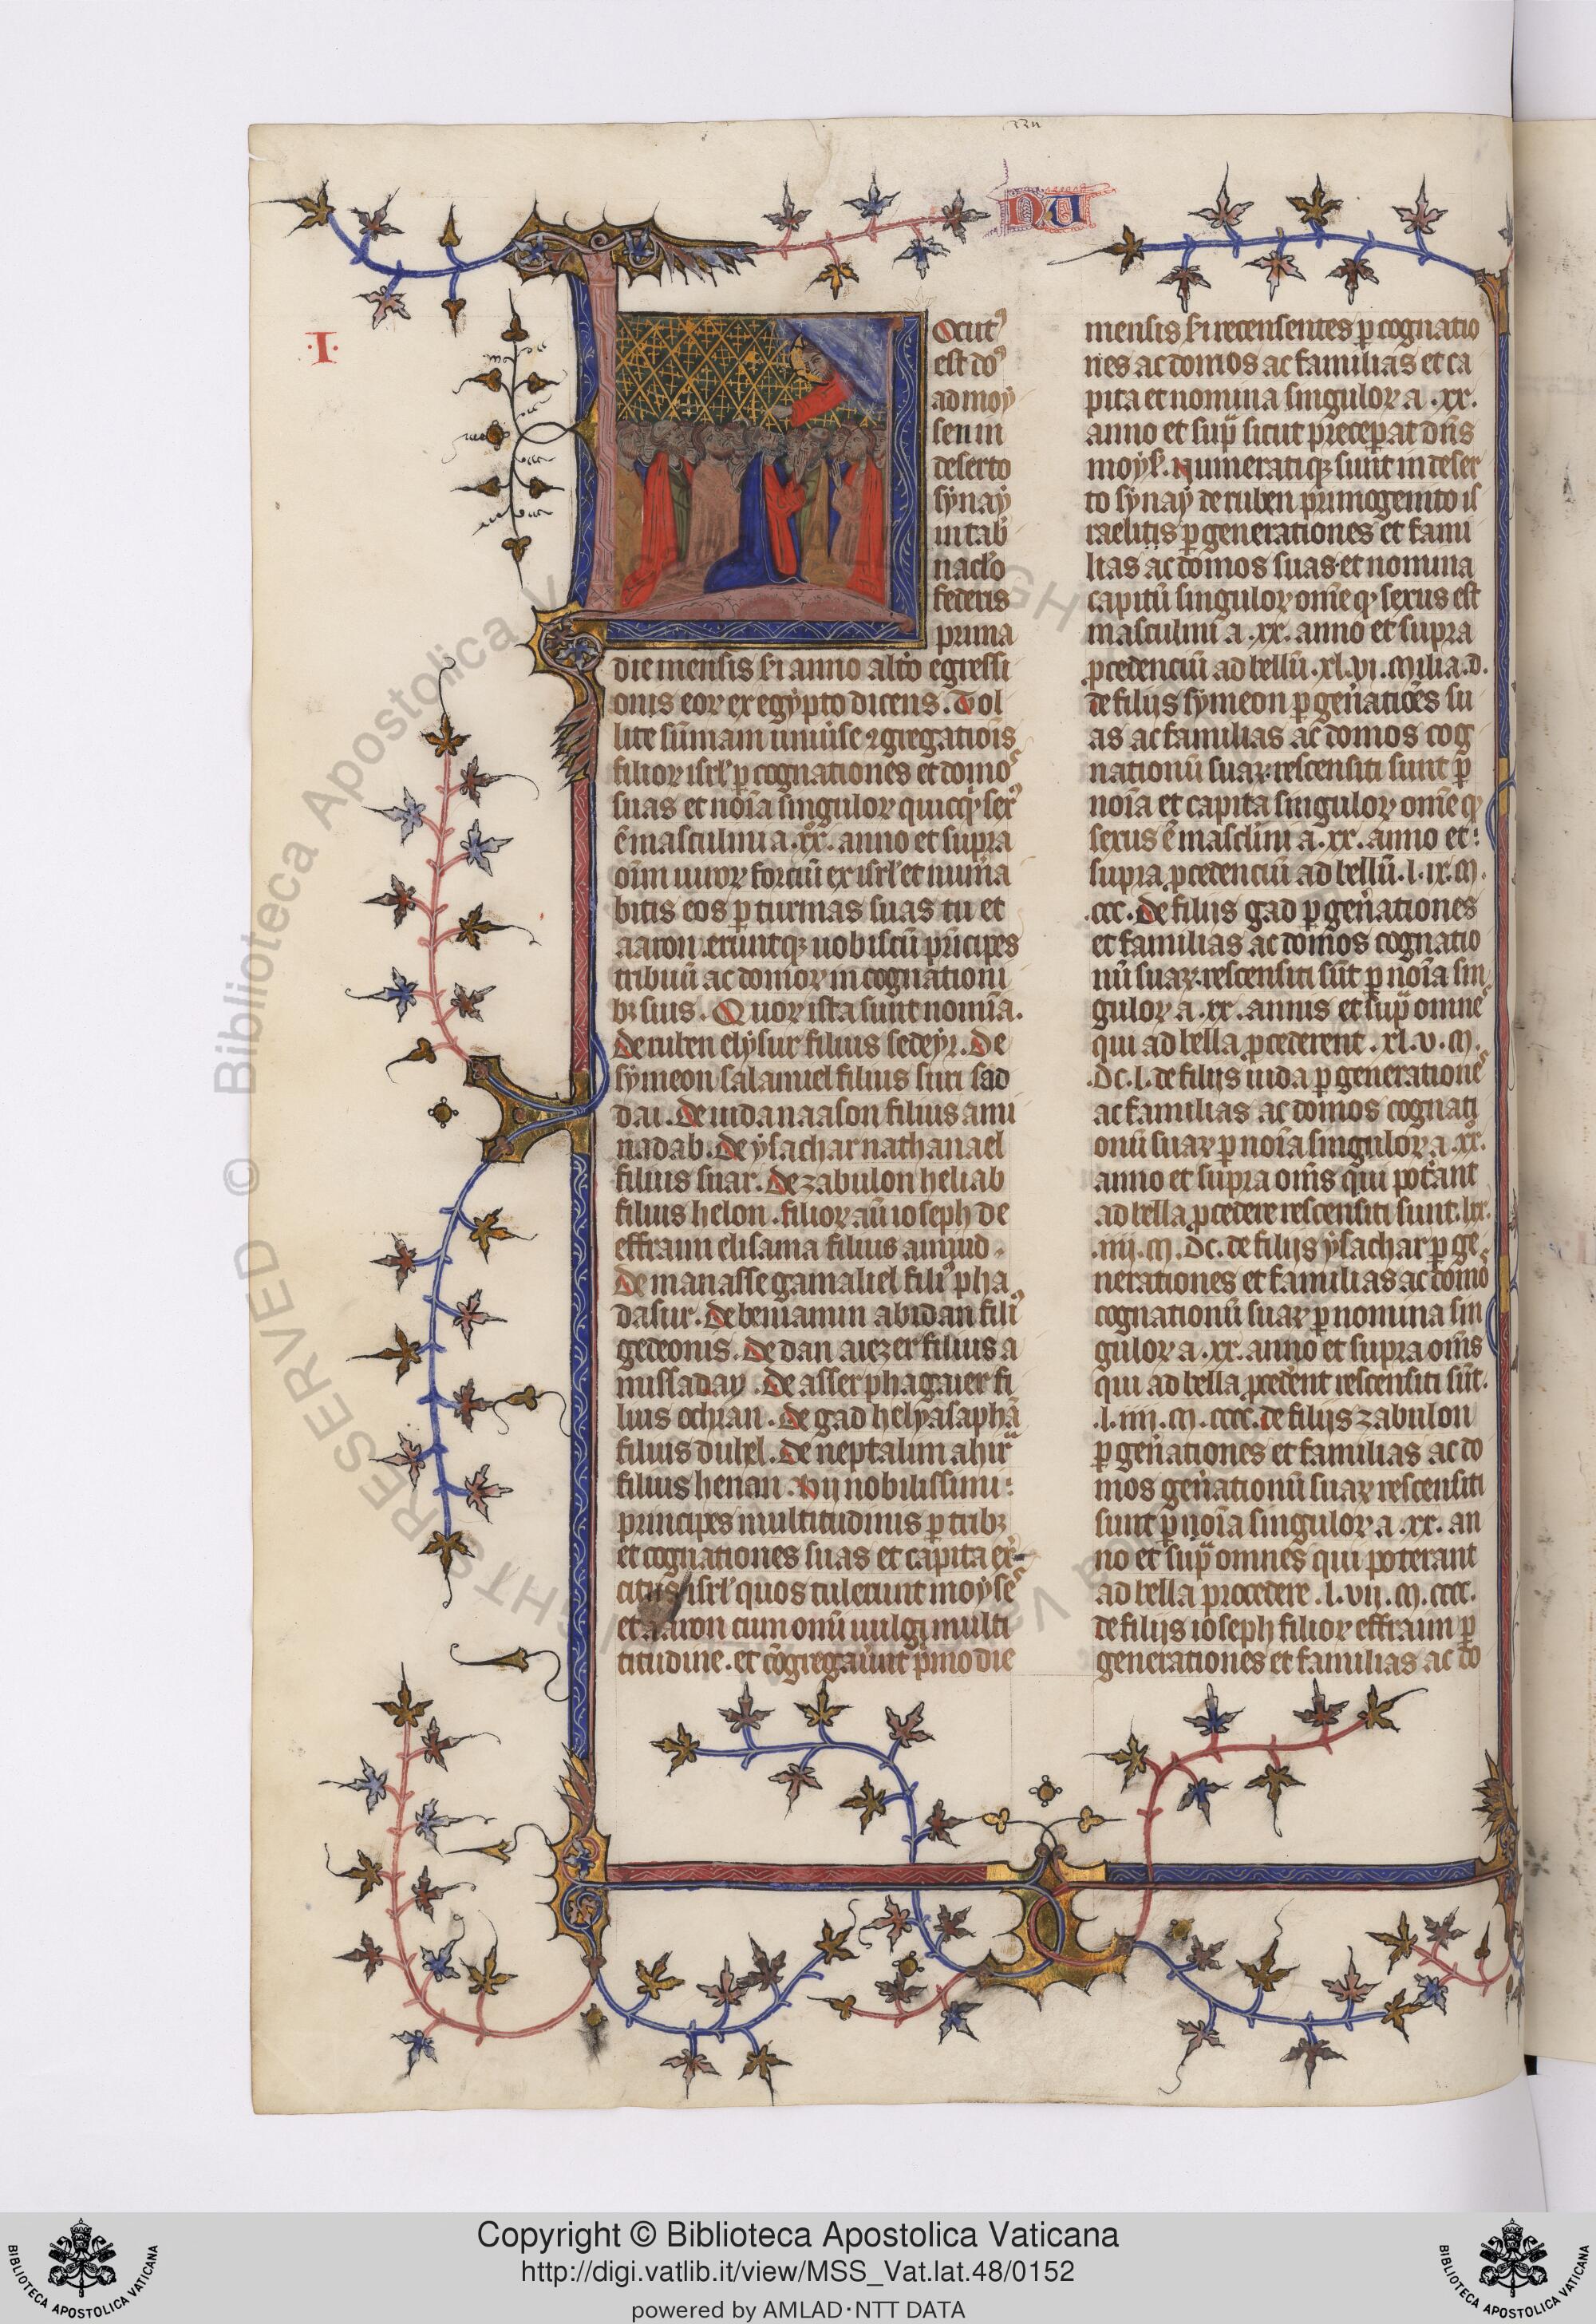 NU
·I·
Ocut⁹
est do⁹
ad moy
sen in
deserto
sẏnaẏ
in tab̾
nac̾lo
federis
prima
die mensis s̾i anno alt̾o egressi
onis eoꝝ ex egẏpto dicens. Tol
lite sūmam uniu̾se ꝯgregatiōis
filioꝝ isrl̾ ꝑ cognationes et domo⁹
suas et noı̄a singuloꝝ quicq̾ꝫ sex⁹
ē masculini a .xx. anno et supra
oı̄m uiroꝝ forciū ex isrl̾ et num̾a
bitis eos ꝑ turmas suas tu et
aaron .eruntqꝫ uobiscū prı̄cipes
tribuū ac domoꝝ in cognationi
bꝫ suis. Quoꝝ ista sunt nomı̄a.
De ruben elẏsur filius sedeẏr. De
sẏmeon salamiel filius suri sad
dai. De iuda naason filius ami
nadab. De ẏsachar nathanael
filius suar. De zabulon heliab
filius helon. filioꝝ aū ioseph de
effraim elisama filius amiud.
De manasse gamaliel fili⁹ pha
dasur. De beniamin abidan fili⁹
gedeonis. De dan aiezer filius a
misaday. De asser phagaier fi
lius ochran. De gad helẏasaphā
filius duhel. De neptalim ahir̾a
filius henan. Hij nobilissimi:
principes multitudinis ꝑ tribꝫ
et cognationes suas et capita ex̾
citus isrl̾ quos tulerunt moẏse⁹
et aaron cum om̄i uulgi multi
titudine. et cōgregau̾unt p̾mo die
mensis s̾i recensentes ꝑ cognatio
nes ac domos ac familias et ca
pita et nomina singuloꝝ a .xx.
anno et sup̾ sicut precep̾at dn̄s
moẏsi. Numeratiqꝫ sunt in deser
to sẏnaẏ de ruben primogenito is
raelitis ꝑ generationes et fami
lias ac domos suas et nomina
capitū singuloꝝ om̄e qꝫ sexus est
masculini a .xx. anno et supra
ꝓcedenciū ad bellū .xl.vi. milia .d.
de filijs sẏmeon ꝑ gen̾atiōes su
as ac familias ac domos cog
nationū suaꝝ. rescensiti sunt ꝑ
noı̄a et capita singuloꝝ om̄e qꝫ
sexus ē mascl̾ini a .xx. anno et:
supra ꝓcedenciū ad bellū .l.ix.m.
.ccc. De filijs gad ꝑ gen̾ationes
et familias ac domos cognatio
nū suaꝝ. rescensiti sūt ꝑ noı̄a sin
guloꝝ a .xx. annis et sup̾ omne⁹
qui ad bella ꝓcederent .xl.v.m.
.dc.l. de filijs iuda ꝑ generatione⁹
ac familias ac domos cognati
onū suaꝝ ꝑ noı̄a singuloꝝ a .xx.
anno et supra om̄s qui pot̾ant
ad bella ꝓcedere rescensiti sunt .lxx.
.iiij.m.dc. de filijs ẏsachar ꝑ ge
nerationes et familias ac domo⁹
cognationū suaꝝ ꝑ nomina sin
guloꝝ a .xx. anno et supra om̄s
qui ad bella ꝓced̾ent rescensiti sūt.
.l.iiij.m.cccc. de filijs zabulon
ꝑ gen̾ationes et familias ac do
mos gen̾ationū suaꝝ rescensiti
sunt ꝑ noı̄a singuloꝝ a .xx. an
no et sup̾ omnes qui poterant
ad bella procedere .l.vij.m.cccc.
de filijs ioseph filioꝝ effraim ꝑ
generationes et familias ac do
Copyright © Biblioteca Apostolica Vaticana
http://digi.vatlib.it/view/MSS_Vat.lat.48/0152
powered by AMLAD·NTT DATA
BIBLIOTECA APOSTOLICA VATICANA
BIBLIOTECA APOSTOLICA VATICANA